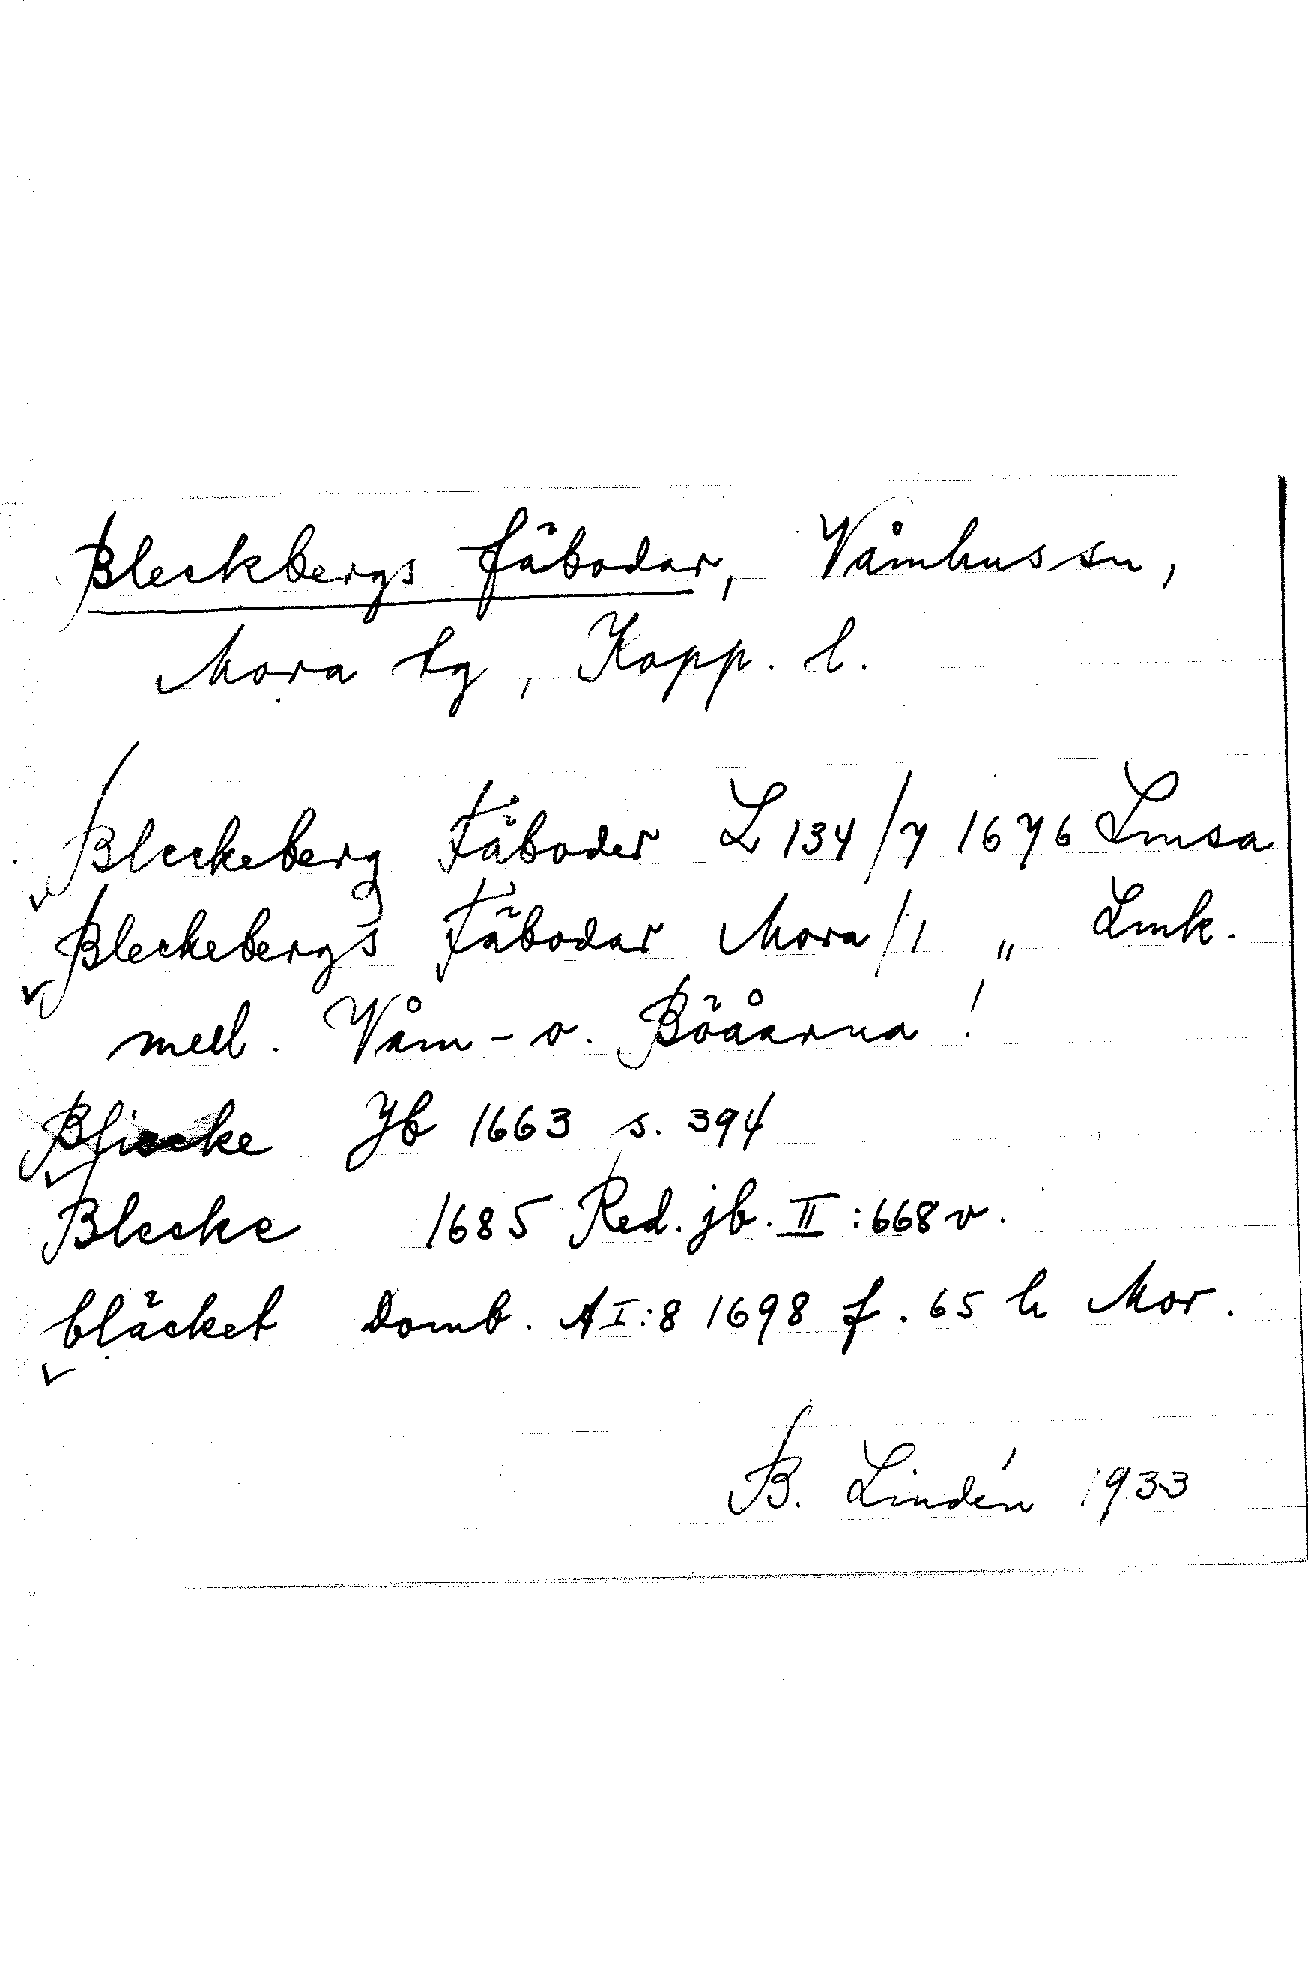 Bleckbergs fäbodar, Våmhus sn,
Mora tg, Kopp. l.
Bleckeberg Fäboder L 134/7 1676 Lmsa
Bleckebergs Fäbodar Mora/1 „ Lmk.
mell. Våm- o. Böåarna!
Jb 1663 s. 394
Blecke 1685 Red. jb. II:668 v.
bläcket Domb. AI:8 1698 f. 65 h Mor.
B. Lindén 1933